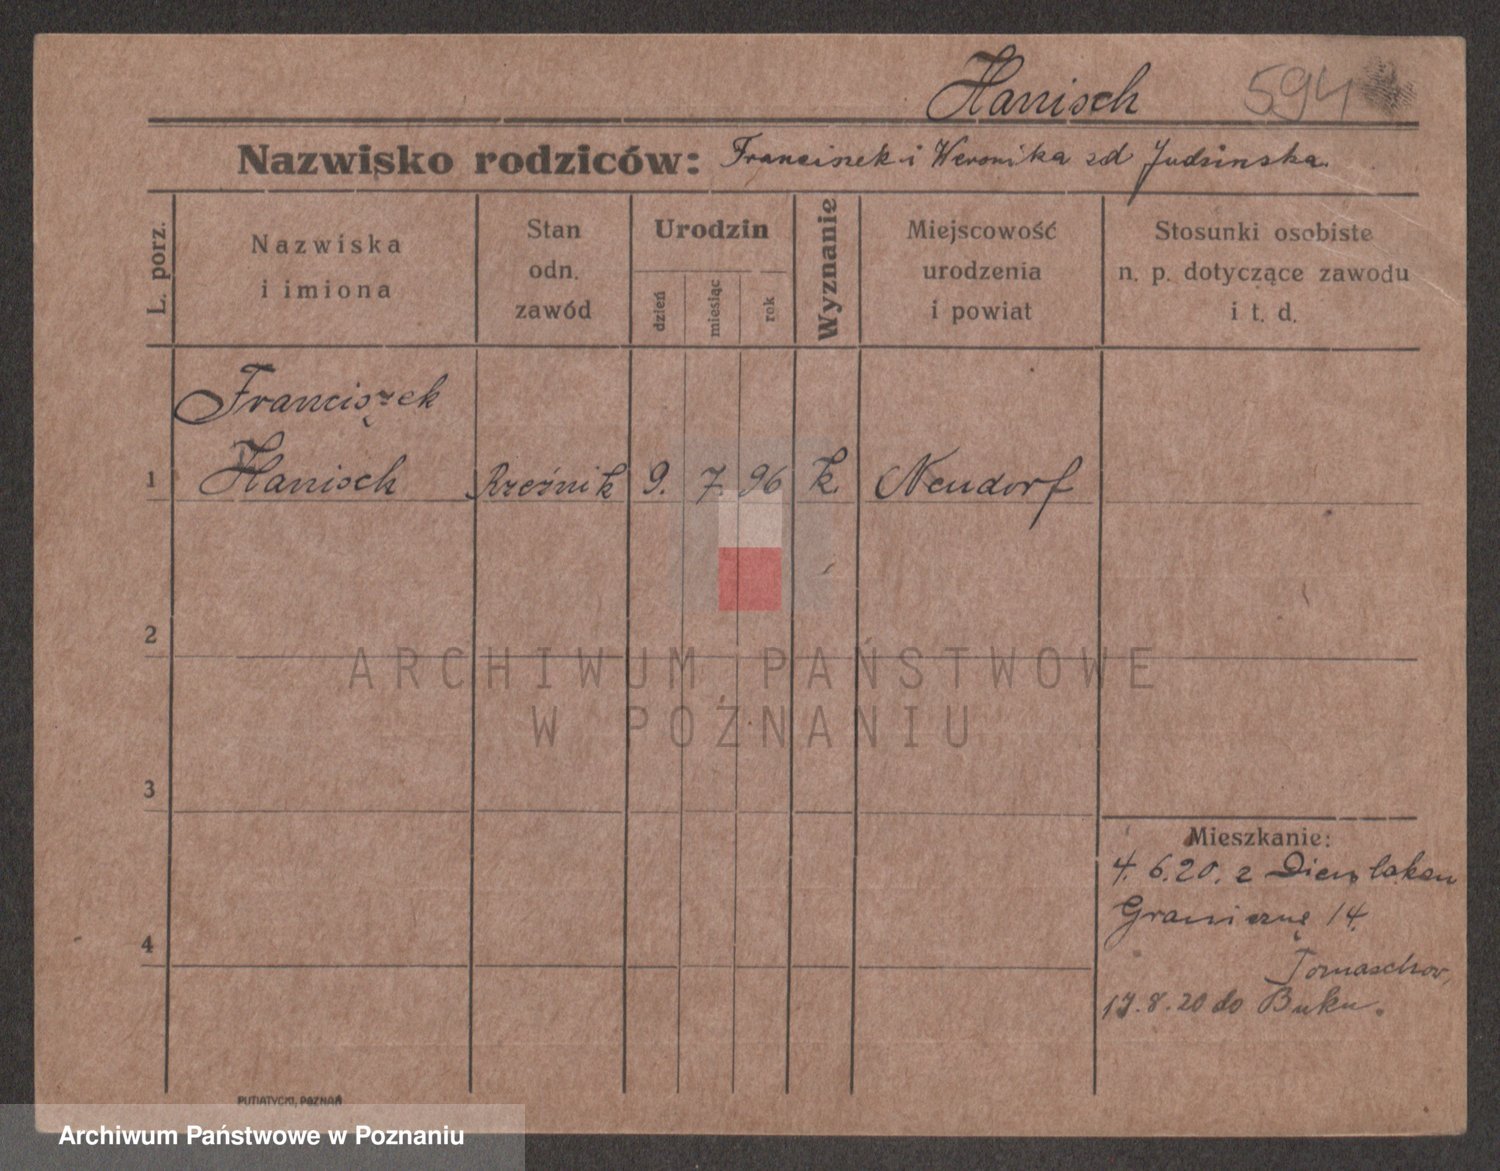 Hanisch 594
Nazwisko rodziców: Franciszek i Weronika zd Judzinska.
L. porz.
Nazwiska
i imiona
Stan
odn.
zawód
Urodzin
dzień
miesiąc
rok
Wyznanie
Miejscowość
urodzenia
i powiat
Stosunki osobiste
n. p. dotyczące zawodu
i t. d.
Franciszek
1 Hanisch Rzeźnik 9. 7. 96 k. Neudorf
2
ARCHIWUM PAŃSTWOWE
W POZNANIU
3
Mieszkanie:
4. 6. 20. z Dienslaken
Graniczne 14.
4
Tomaschow,
17. 8. 20 do Buku.
PUTIATYCKI, POZNAŃ
Archiwum Państwowe w Poznaniu